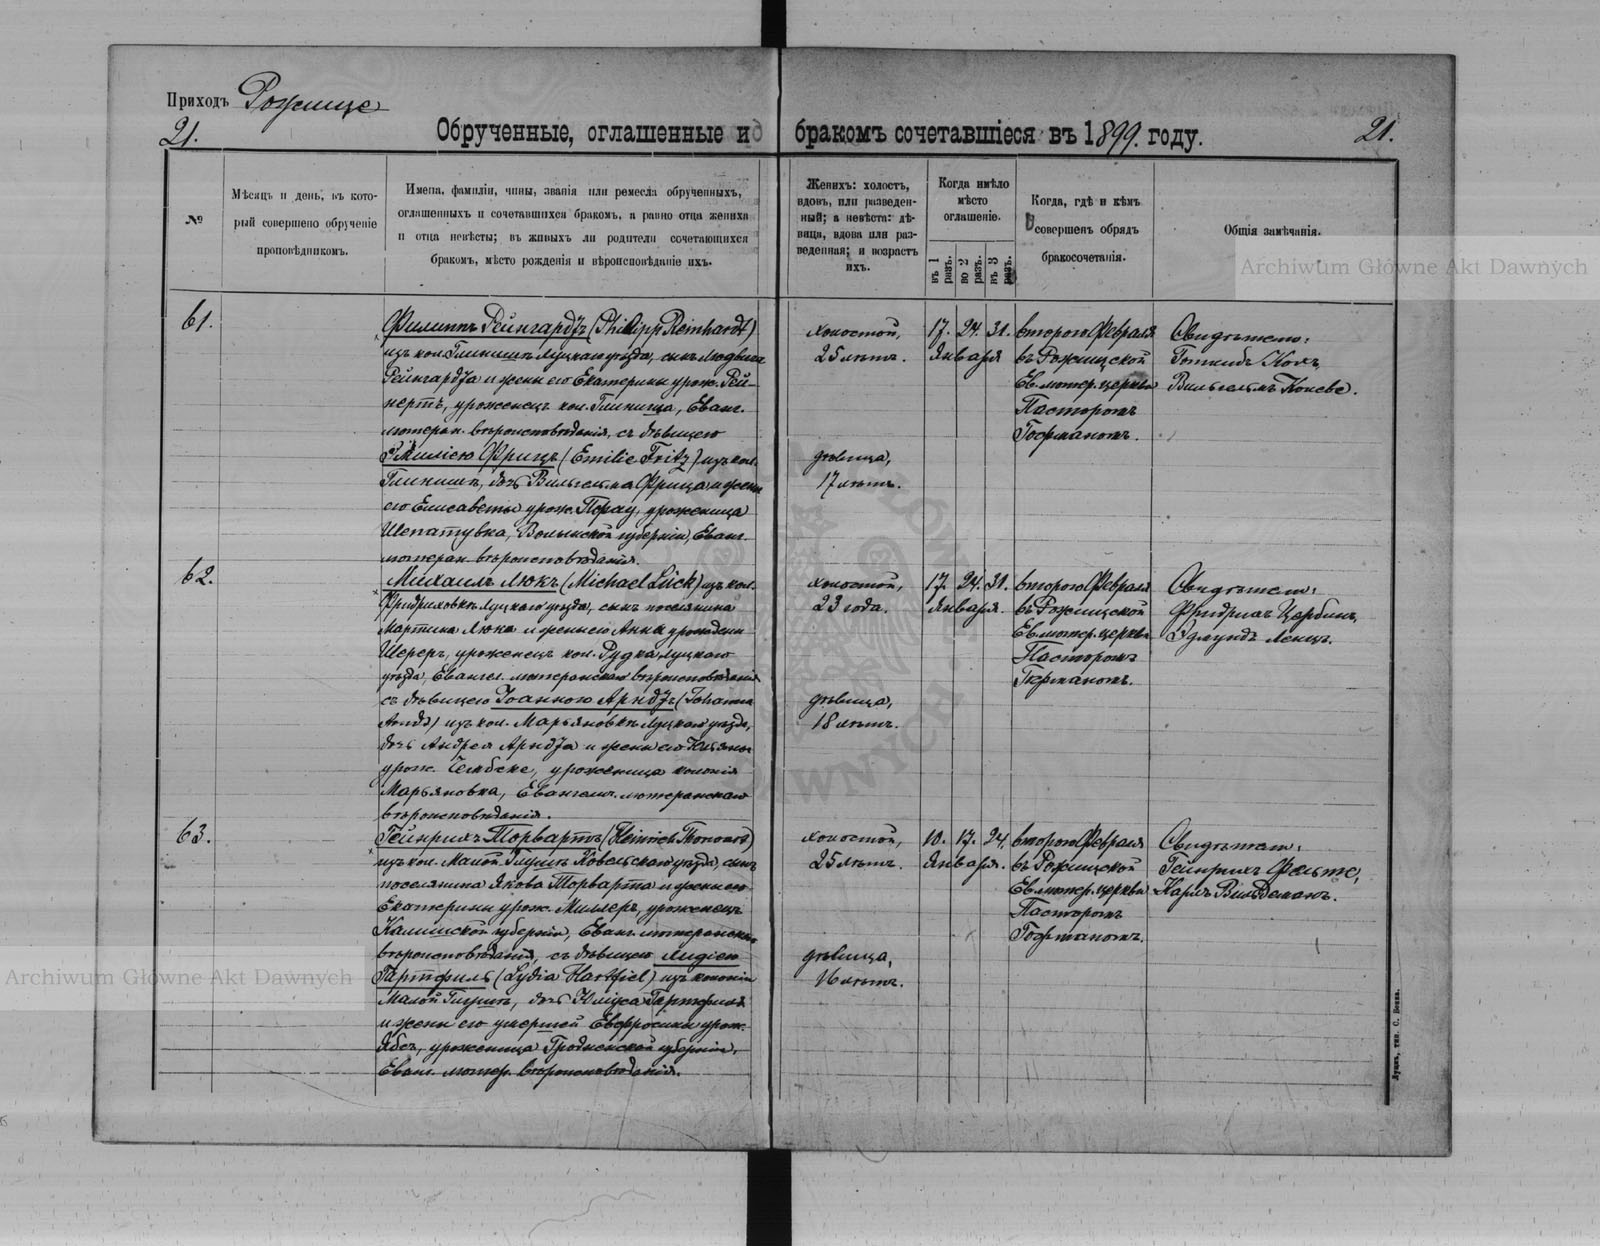 Приходъ Рожище
21.
Обрученные, оглашенные и бракомъ сочетавшіеся въ 1899. году.
21.
№
Мѣсяцъ и день, въ кото-
рый совершено обрученіе
проповѣдникомъ.
Имена, фамиліи, чины, званія или ремесла обрученныхъ,
оглашенныхъ и сочетавшихся бракомъ, а равно отца жениха
и отца невѣсты; въ живыхъ ли родители сочетающихся
бракомъ, мѣсто рожденія и вѣроисповѣданіе ихъ.
Женихъ: холостъ,
вдовъ, или разведен-
ный; а невѣста: дѣ-
вица, вдова или раз-
веденная; и возрастъ
ихъ.
Когда имѣло
мѣсто
оглашеніе.
въ 1 разъ.
во 2 разъ.
въ 3 разъ.
Когда, гдѣ и кѣмъ
совершенъ обрядъ
бракосочетанія.
Общія замѣчанія.
61.
Филиппъ Рейнгардтъ (Philipp Reinhardt)
изъ кол. Глинищъ Луцкаго уѣзда, сынъ Людвига
Рейнгардта и жены его Екатерины урож. Рей-
нертъ, уроженецъ кол. Глинища, Еванг.
лютеран. вѣроисповѣданія, съ дѣвицею
Эмиліею Фрицъ (Emilie Fritz) изъ кол.
Глинищъ, дочь Вильгельма Фрица и жены
его Елисаветы урож. Порау, уроженица
Шепатувка, Волынской губерніи, Еванг.
лютеран. вѣроисповѣданія.
холостой,
25 лѣтъ.
дѣвица,
17 лѣтъ.
17. 24. 31.
Января
второго Февраля
въ Рожищской
Ев. лютер. церкви
Пасторомъ
Гофманомъ.
Свидѣтели:
Готлибъ Кохъ,
Вильгельмъ Коневе.
62.
Михаилъ Люкъ (Michael Lück) изъ кол.
Фридриховкъ Луцкаго уѣзда, сынъ поселянина
Мартина Люка и жены его Анны урожден.
Шереръ, уроженецъ кол. Рудка Луцкаго
уѣзда, Евангел. лютеранскаго вѣроисповѣданія
съ дѣвицею Іоанною Арндтъ (Johanna
Arndt) изъ кол. Марьяновкъ Луцкаго уѣзда,
дочь Андрея Арндта и жены его Юльяны
урож. Гембске, уроженица колоніи
Марьяновка, Евангели. лютеранскаго
вѣроисповѣданія.
холостой,
23 года.
дѣвица,
18 лѣтъ.
17. 24. 31.
Января.
второго Февраля
въ Рожищской
Ев. лютер. церкви
Пасторомъ
Гофманомъ.
Свидѣтели:
Фридрихъ Цербинъ,
Эдмундъ Ленцъ.
63.
Гейнрихъ Торвартъ (Heinrich Thorwart)
изъ кол. Малой Глушъ Ковельскаго уѣзда, сынъ
поселянина Якова Торварта и жены его
Екатерины урож. Миллеръ, уроженецъ
Калишской губерніи, Еванг. лютеранскаго
вѣроисповѣданія, съ дѣвицею Лидіею
Гартфиль (Lydia Hartfiel) изъ колоніи
Малой Глушъ, дочь Юліуса Гартфиля
и жены его умершей Евфросины урож.
Ябсъ, уроженица Гродненской губерніи,
Еванг. лютер. вѣроисповѣданія.
холостой,
25 лѣтъ.
дѣвица,
16 лѣтъ.
10. 17. 24.
Января.
второго Февраля
въ Рожищской
Ев. лютер. церкви
Пасторомъ
Гофманомъ.
Свидѣтели:
Гейнрихъ Фельте,
Карлъ Вильдеманъ.
Луцкъ, тип. С. Бонка.
Archiwum Główne Akt Dawnych
Archiwum Główne Akt Dawnych